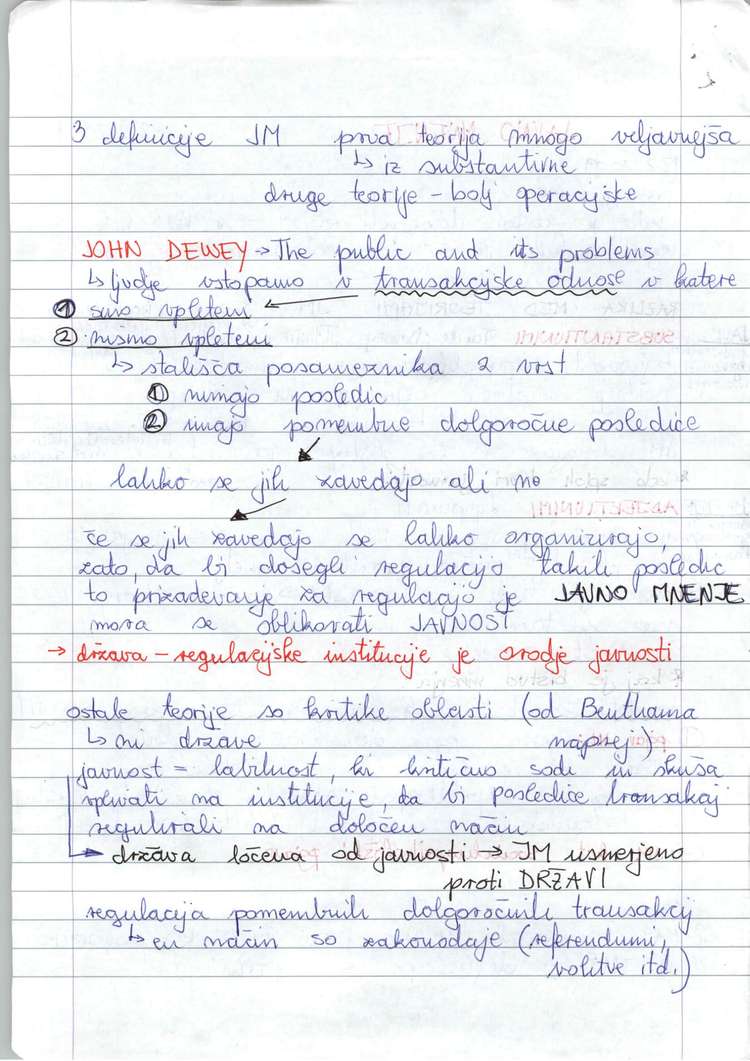 3 definicije JM prva teorija mnogo veljavnejša
↳ iz substantivne
druge teorije – bolj operacijske
JOHN DEWEY → The public and its problems
↳ ljudje vstopamo v transakcijske odnose v katere
① smo vpleteni ←
② nismo vpleteni
↳ stališča posameznika 2 vrst
① nimajo posledic
② imajo pomembne dolgoročne posledice
lahko se jih zavedajo ali ne
če se jih zavedajo se lahko organizirajo,
zato, da bi dosegli regulacijo takih posledic
to prizadevanje za regulacijo je JAVNO MNENJE
mora se oblikovati JAVNOST
→ država – regulacijske institucije je orodje javnosti
ostale teorije so kritike oblasti (od Benthama
↳ ni države naprej)
javnost = labilnost, ki kritično sodi in skuša
vplivati na institucije, da bi posledice transakcij
regulirali na določen način
→ država ločena od javnosti → JM usmerjeno
proti DRŽAVI
regulacija pomembnih dolgoročnih transakcij
↳ en način so zakonodaje (referendumi,
volitve itd.)